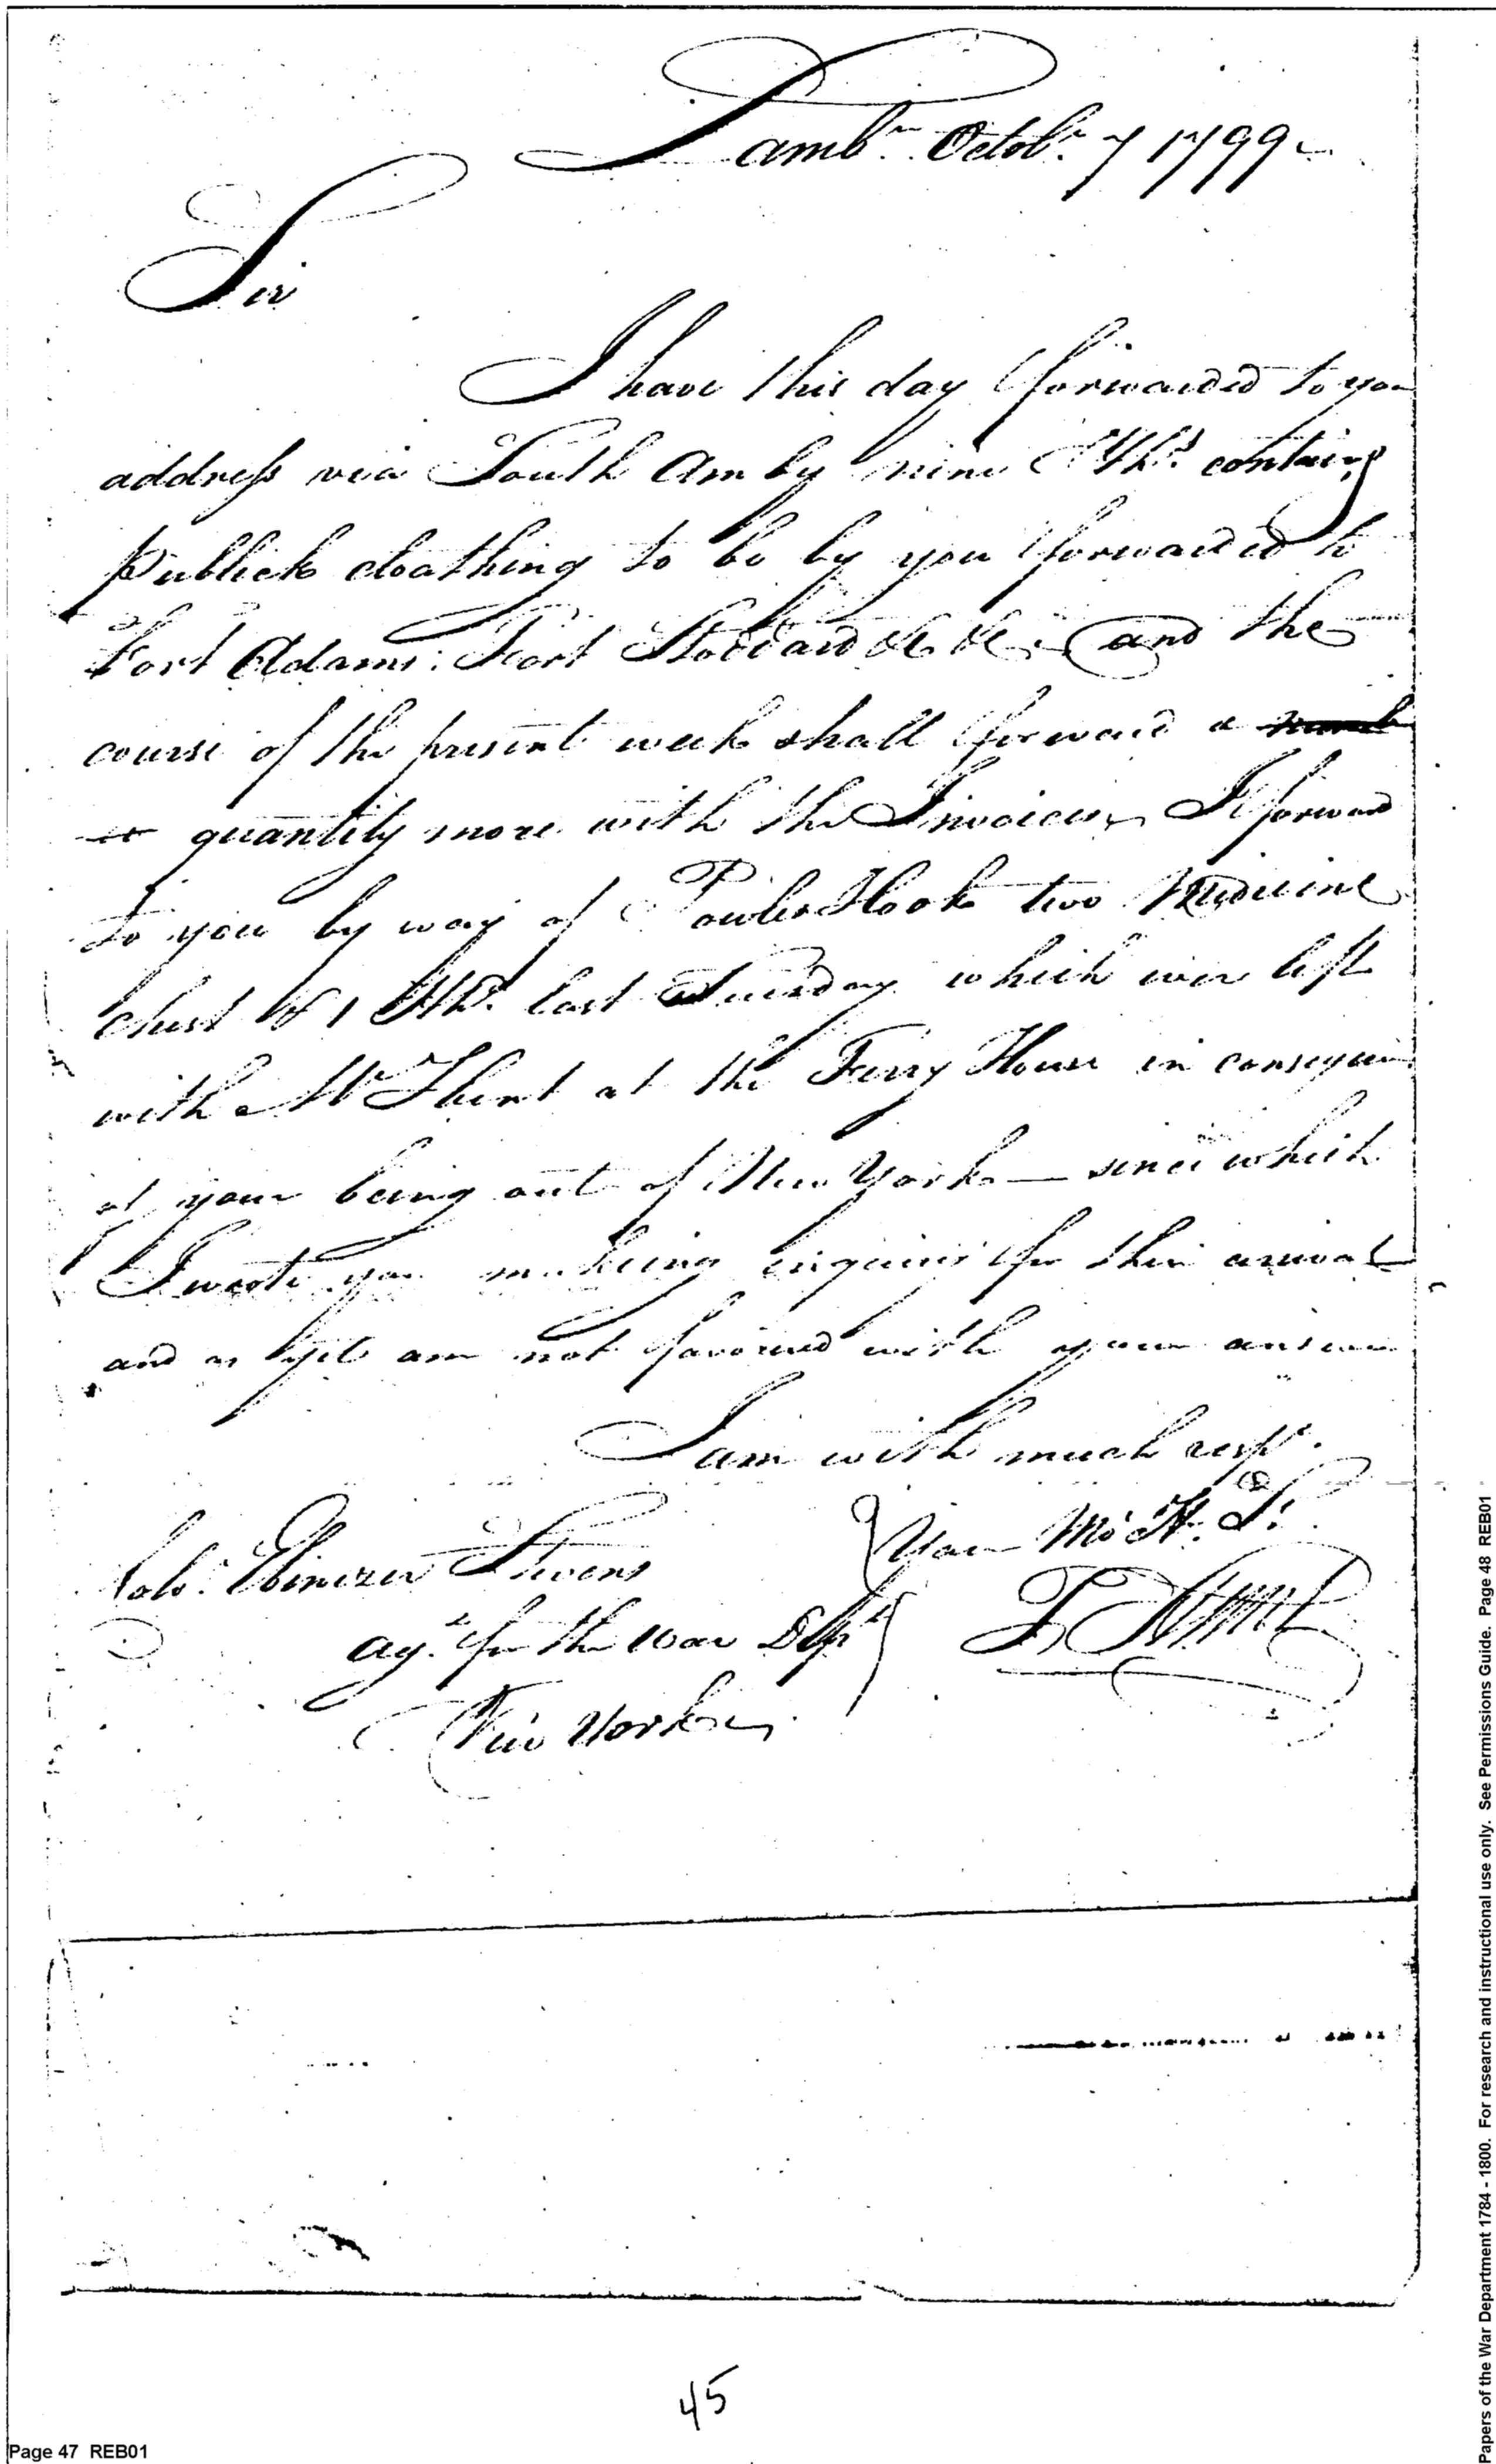 Lambn. Octobr. 7 1799
Sir
I have this day forwarded to you
address via South Amby nine Hhds. containg
Publick cloathing to be by you forwarded to
Fort Adams: Fort Stoddard &c &c. and the
course of the present week shall forward a
quantity more with the Invoices, I forward
to you by way of Powles Hook two Medicine
chest & 1 Hhd. last Tuesday which wer left
with Mr Hunt at the Ferry House in consequen
of your being out of New York — since which
I wrote you making enquiry for their arrival
and as yet am not favoured with your answer
I am with much respt.
Your Mo. H. St.
Colo. Ebenezer Stevens
agt. for the War Dept
New York
45
Page 47 REB01
Papers of the War Department 1784 - 1800. For research and instructional use only. See Permissions Guide. Page 48 REB01